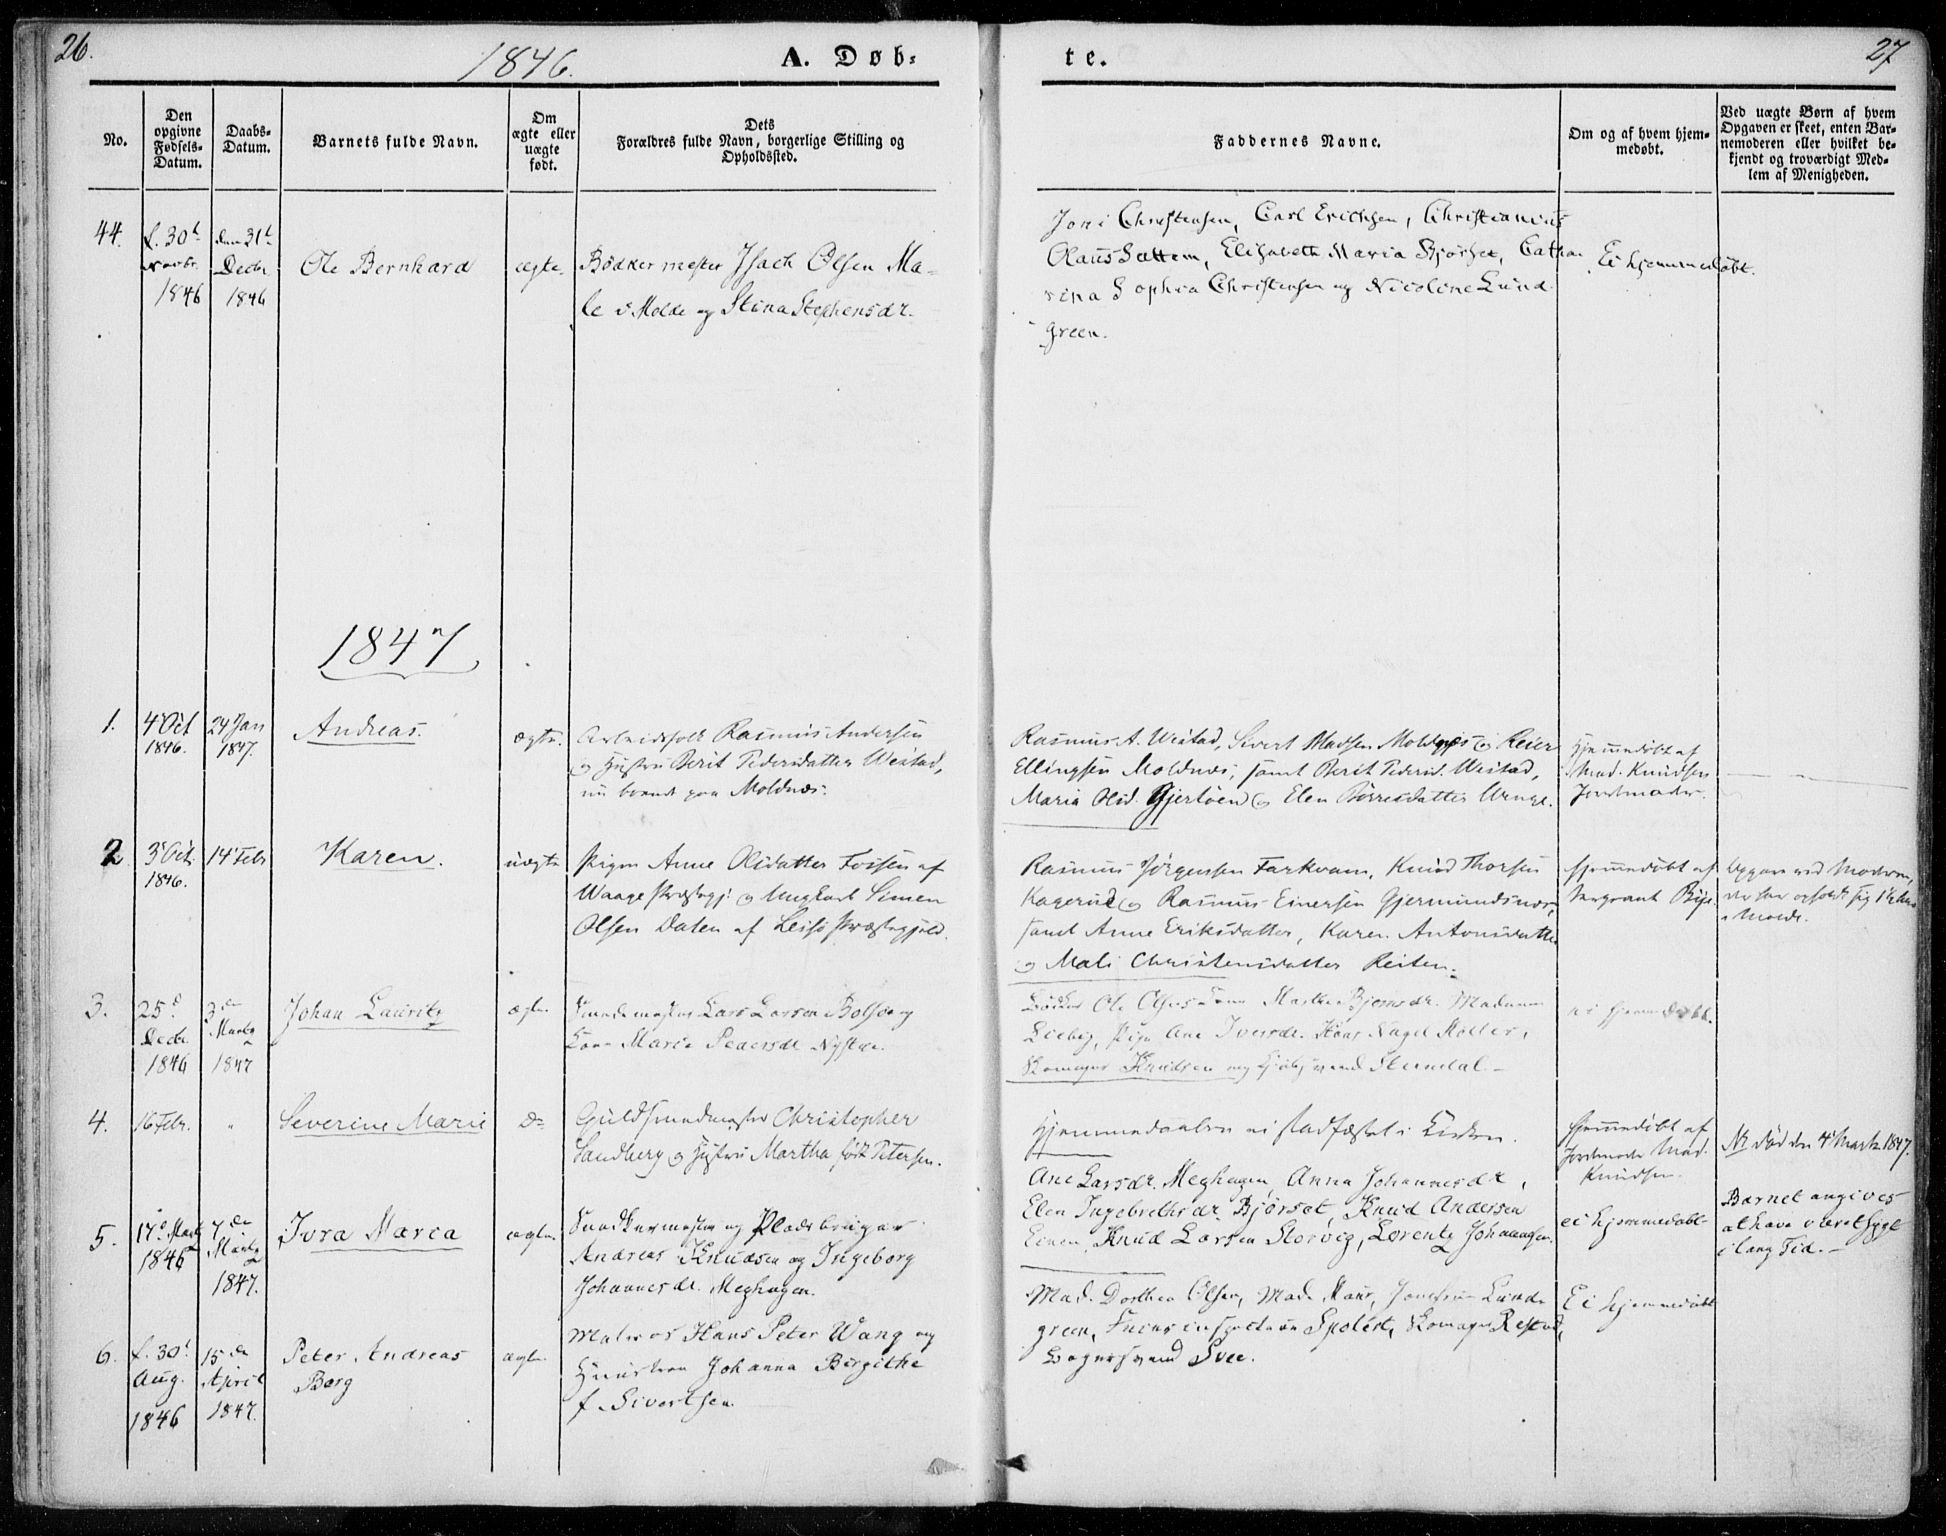 26.
1846.
A. Døb-
te.
27
No.
Den
opgivne
Fødsels-
Datum.
Daabs-
Datum.
Barnets fulde Navn.
Om
ægte eller
uægte
født.
Dets
Forældres fulde Navn, borgerlige Stilling og
Opholdssted.
Faddernes Navne.
Om og af hvem hjem-
medøbt.
Ved uægte Børn af hvem
Opgaven er skeet, enten Bar-
nemoderen eller hvilket be-
kjendt og troværdigt Med-
lem af Menigheden.
44.
d. 30t
Novbr.
1846
den 31t
Decbr.
1846
Ole Bernhard
ægte.
Bødkermester Isach Olsen Ma-
le i Molde og Stina Stephensdr.
Christensen, Carl Erichsen, Christianius
Olaus Sættem, Elisabeth Maria Bjørset, Catha
rina Sophia Christensen og Nicoline Lund
green.
Ei hjemmedøbt.
1847
1.
4 Oct
1846.
24 Jan
1847.
Andreas.
ægte.
Arbeidsfolk Rasmus Andersen
og Hustru Berit Pedersdatter Weistad,
nu boende paa Moldnæs.
Rasmus A. Weistad, Sivert Madsen Moldnæs og Reier
Ellingsen Moldnæs, samt Berit Pedersd. Weistad,
Maria Olsd. Gjertøen og Elen Børresdatter Unge.
Hjemmedøbt af
Mad. Knudsen
Jordmoder.
2
3 Oct.
1846.
14 Febr
Karen.
uægte
Pigen Anne Olsdatter Fossen af
Waage Præstegj. og Ungkarl Simen
Olsen Dalen af Lesjø Præstegjeld.
Rasmus Jørgensen Farkvam, Knud Thorsen
Kagerud og Rasmus Einersen Gjermundsnæs,
samt Anne Eriksdatter, Karen Antonsdatter
og Mali Christensdatter Reiten.
Hjemmedøbt af
Opgave ved Moderen,
i Molde.
3.
25d
Decbr.
1846
3de
Marts
1847
Johan Lauritz
ægte.
Smedemester Lars Larsen Bolsø og
Kone Marie Pedersdr Nystuen.
Bødker Ole Olsens Kone Marthe Bjørnsdr. Madame
Liebig, Pige Ane Iversdr. Hans Nagel Møller,
Skomager Knudsen og Stendal.
ei hjemmedøbt.
4.
16 Febr.
"
Severine Marie
Do
Guldsmedmester Christopher
Sandberg og Hustru Martha født Petersen.
Hjemmedaaben ei stadfæstet i Kirken.
Hjemmedøbt af
Jordmoder Mad.
Knudsen.
NB død den 4 Marts 1847.
5.
17de
1846
7de
Marts
1847.
Ivra Maria
ægte.
Snedkermester og Pladsbruger
Andreas Knudsen og Ingeborg
Johannesdr. Meghagen.
Ane Larsdr. Meghagen, Anna Johannesdr,
Elen Ingebrethsdr. Bjørset, Knud Andersen
Knud Larsen Storvig, Lorentz Johannsen.
ei hjemmedøbt
Barnet angives
at have været sygt
i lang Tid.
6.
d. 30t
Aug.
1846
15de
April
1847.
Peter Andreas
Berg
ægte.
Maler Hans Peter Wang og
Hustru Johanna Birgithe
f. Sivertsen.
Mad. Dorthea Olsen, Mad. Maur, Jomfru Lund-
green, Spolert, Skomager Restad,
Bogersvend Svee.
Ei hjemmedøbt